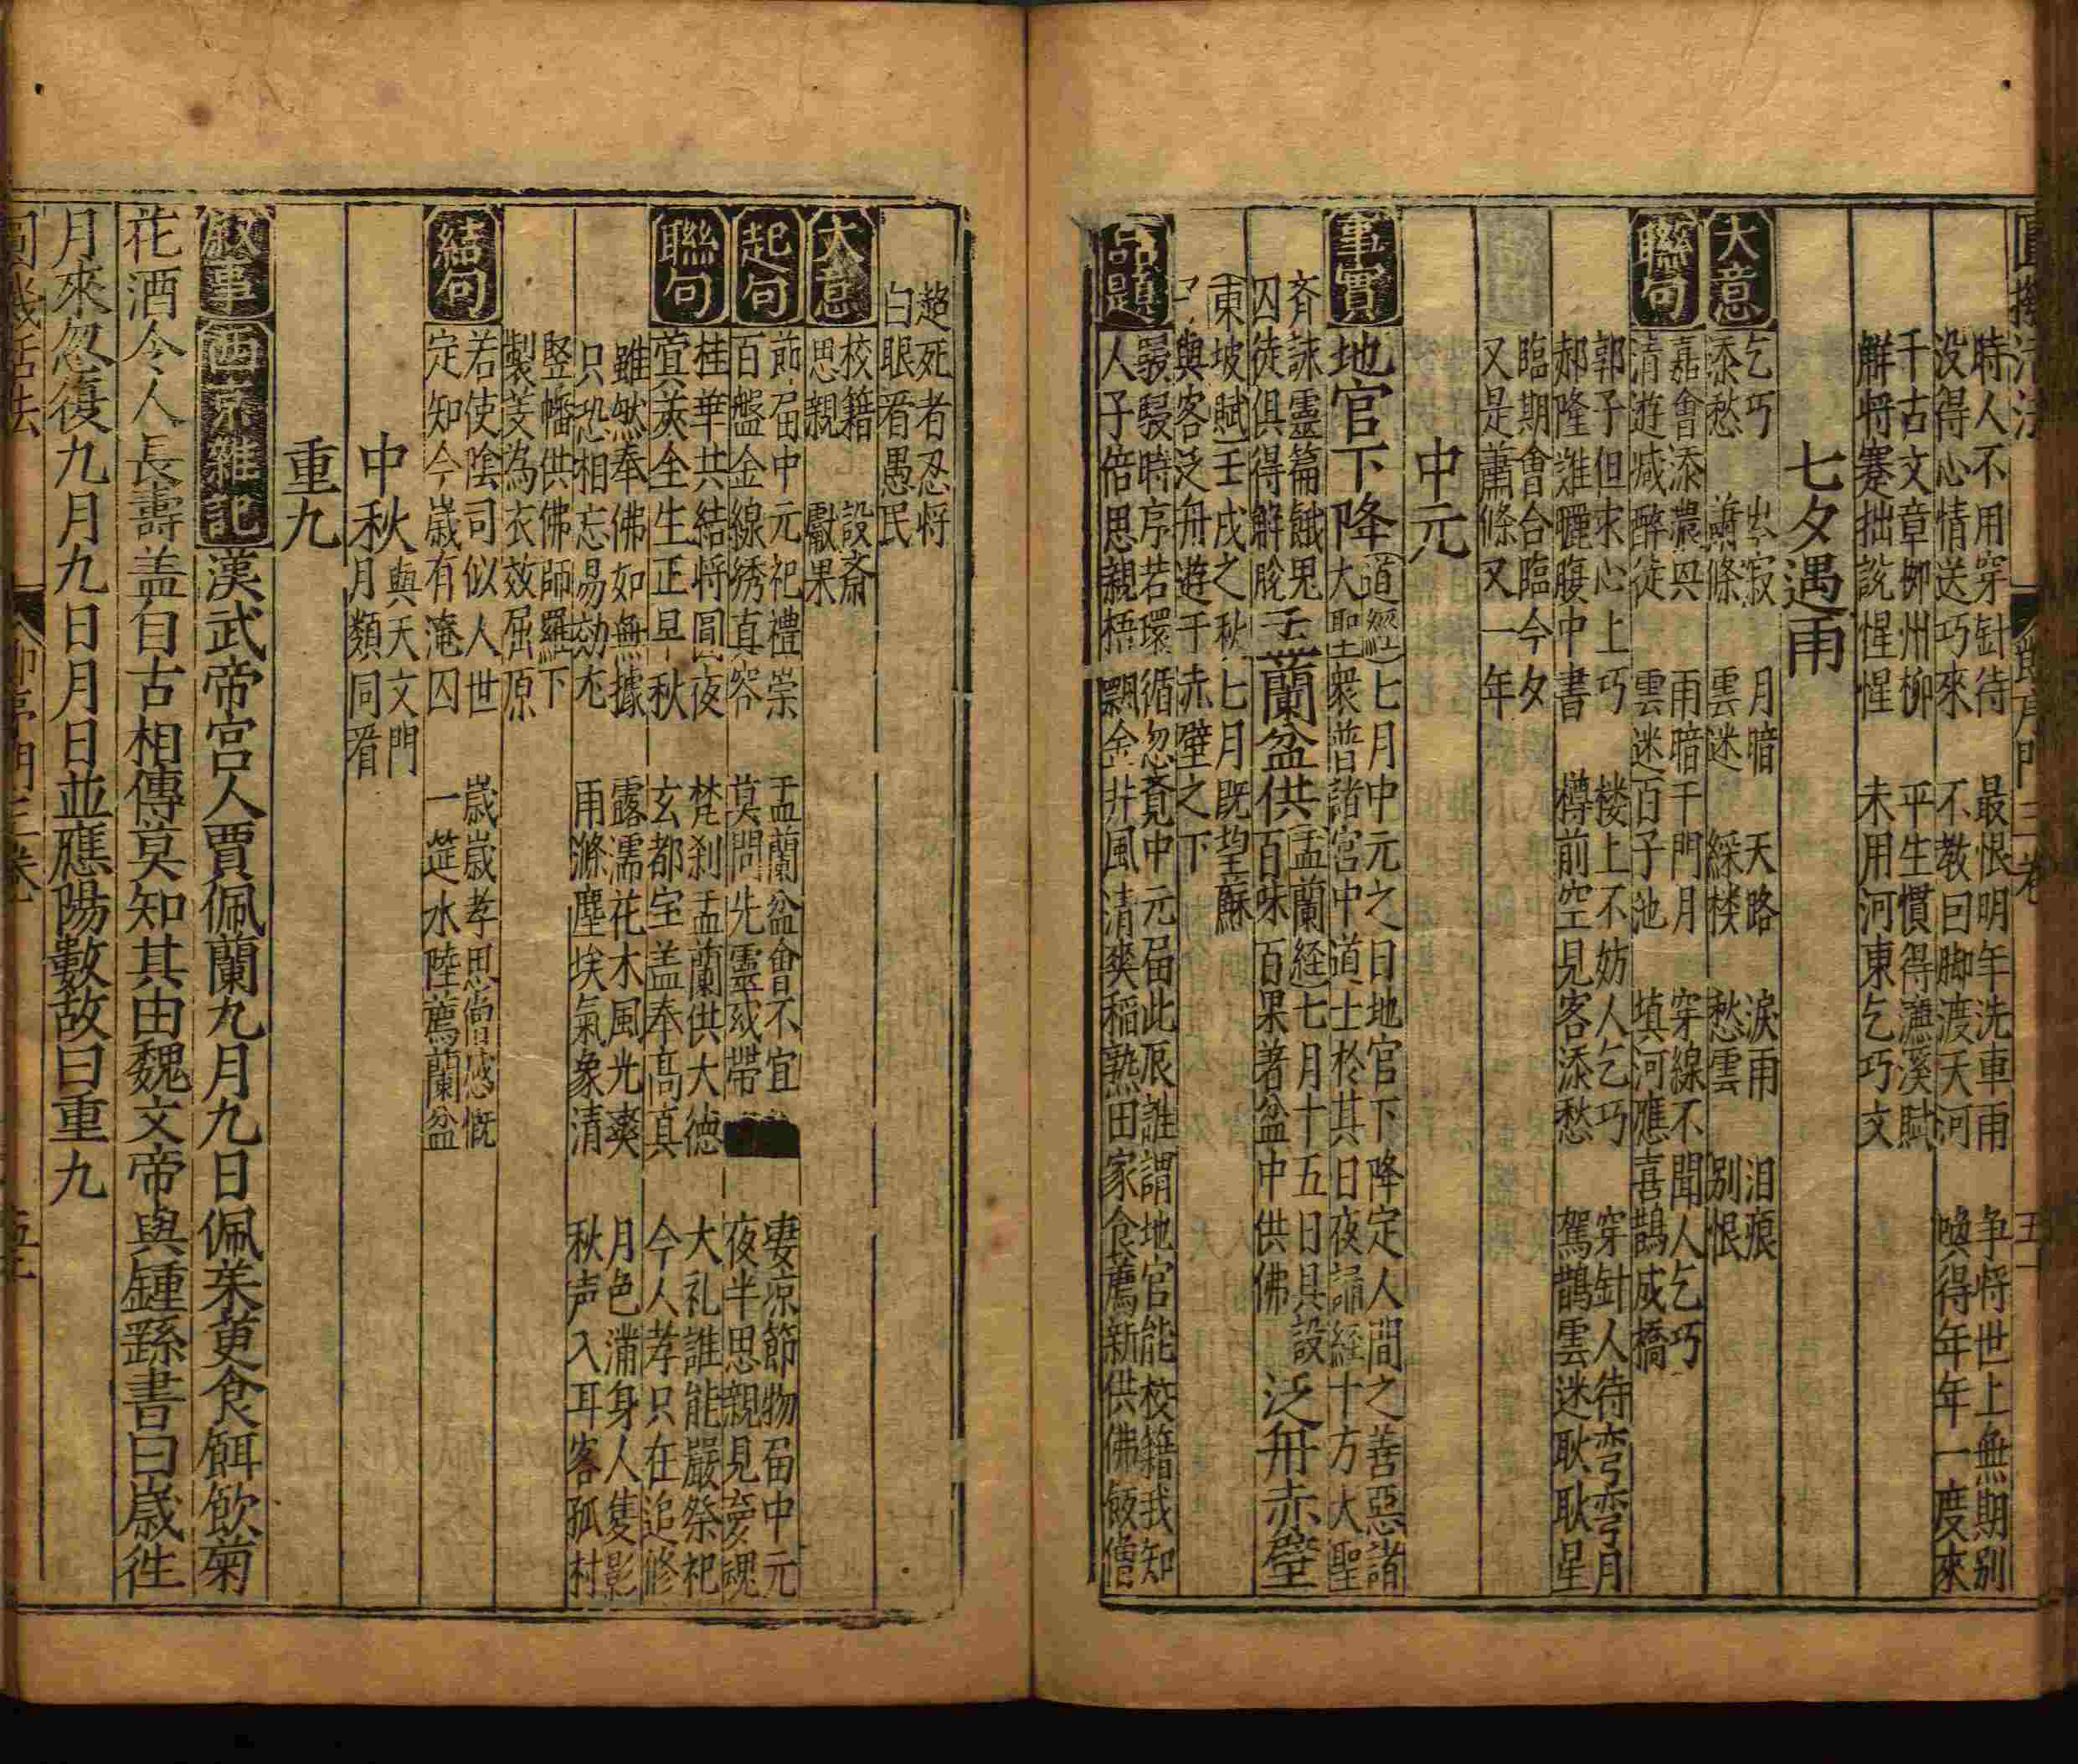 圓機活法 節序門三卷 五十
時人不用穿針待 最恨明年洗車雨 争将世上無期別
没得心情送巧來 不教回脚渡天河 喚得年年一度來
千古文章柳州柳 平生慣得濂溪賦
觧将蹇拙説惺惺 未用河東乞巧文
七夕遇雨
大意
乞巧 岑寂 月暗 天路 淚雨 泪痕
添愁 蕭條 雲迷 綵楼 愁雲 別恨
聯句
嘉會添濃興 雨暗千門月 穿線不聞人乞巧
清遊减醉徒 雲迷百子池 填河應喜鵲成橋
郭子但求心上巧 楼上不妨人乞巧 穿針人待弯弯月
郝隆难曬腹中書 樽前空見客添愁 駕鵲雲迷耿耿星
結句
臨期會合臨今夕
又是蕭條又一年
中元
事實
地官下降
道經七月中元之日地官下降定人間之善惡諸
大聖衆普諸宮中道士於其日夜誦経十方大聖
斉詠靈篇餓鬼
囚徒俱得解脫
盂蘭盆供
孟蘭経七月十五日具設
百味百果著盆中供佛
泛舟赤壁
東坡賦壬戌之秋七月既望蘇
子與客泛舟遊于赤壁之下
品題
駸駸時序若環循 忽覔中元届此辰 誰謂地官能校籍 我知
人子倍思親 梧飄金井風清爽 稻熟田家食薦新 供佛飯僧
超死者忍将
白眼看愚民
大意
校籍 設斋
思親 獻果
起句
節届中元祀禮崇 盂蘭盆會不宜 妻凉節物届中元
百盤金線绣真容 莫問先靈或帶 夜半思親見夢魂
聯句
桂華共結将圓夜 梵刹盂蘭供大德 大礼誰能嚴祭祀
蓂莢全生正早秋 玄都宝盖奉髙真 今人孝只在追修
雖然奉佛如無據 露濡花木風光爽 月色滿身人隻影
只恐相忘易効尤 雨滌塵埃氣象清 秋声入耳客孤村
竪幡供佛師羅下
製芰為衣效屈原
結句
若使陰司似人世 歲歲孝思當感慨
定知今歲有淹囚 一筵水陸薦蘭盆
中秋
與天文門
月類同看
重九
敘事
西京雜記
漢武帝宮人賈佩蘭九月九日佩茱萸食餌飲菊
花酒令人長壽盖自古相傳莫知其由魏文帝與鍾繇書曰歲往
月來忽復九月九日月日並應陽數故曰重九
圓機活法 節序門三卷 五十